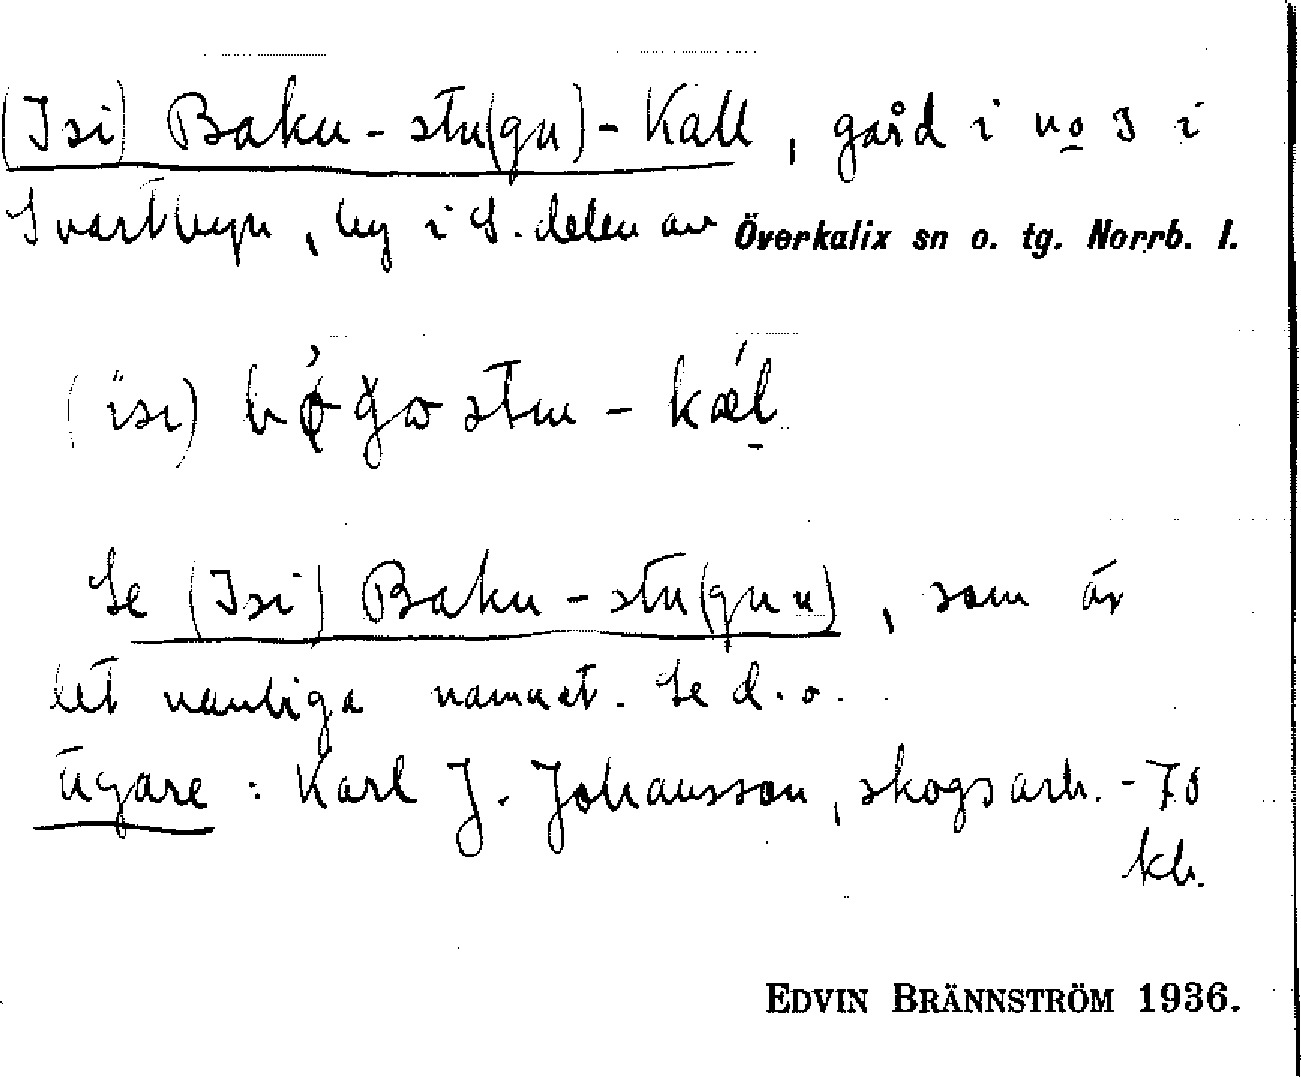 (Isi) Baku-stu(gu)-Kall, gård i no 3 i
Svartbyn, by i S. delen av Överkalix sn o. tg. Norrb. l.
(isi) stu-kæl
Se (Isi) Baku-stu(gun), som är
det vanliga namnet. Se d.o.
Ägare: Karl J. Johansson, skogsarb. -70
kb.
EDVIN BRÄNNSTRÖM 1936.